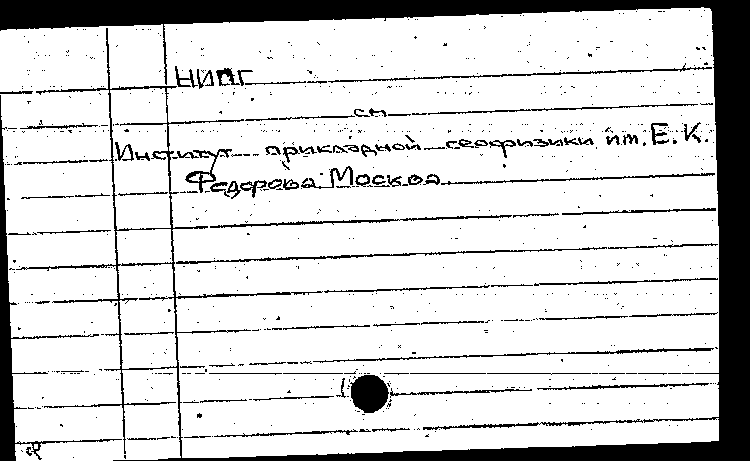 НИПГ
см
Институт прикладной геофизики им. Е. К.
Федерова Москва